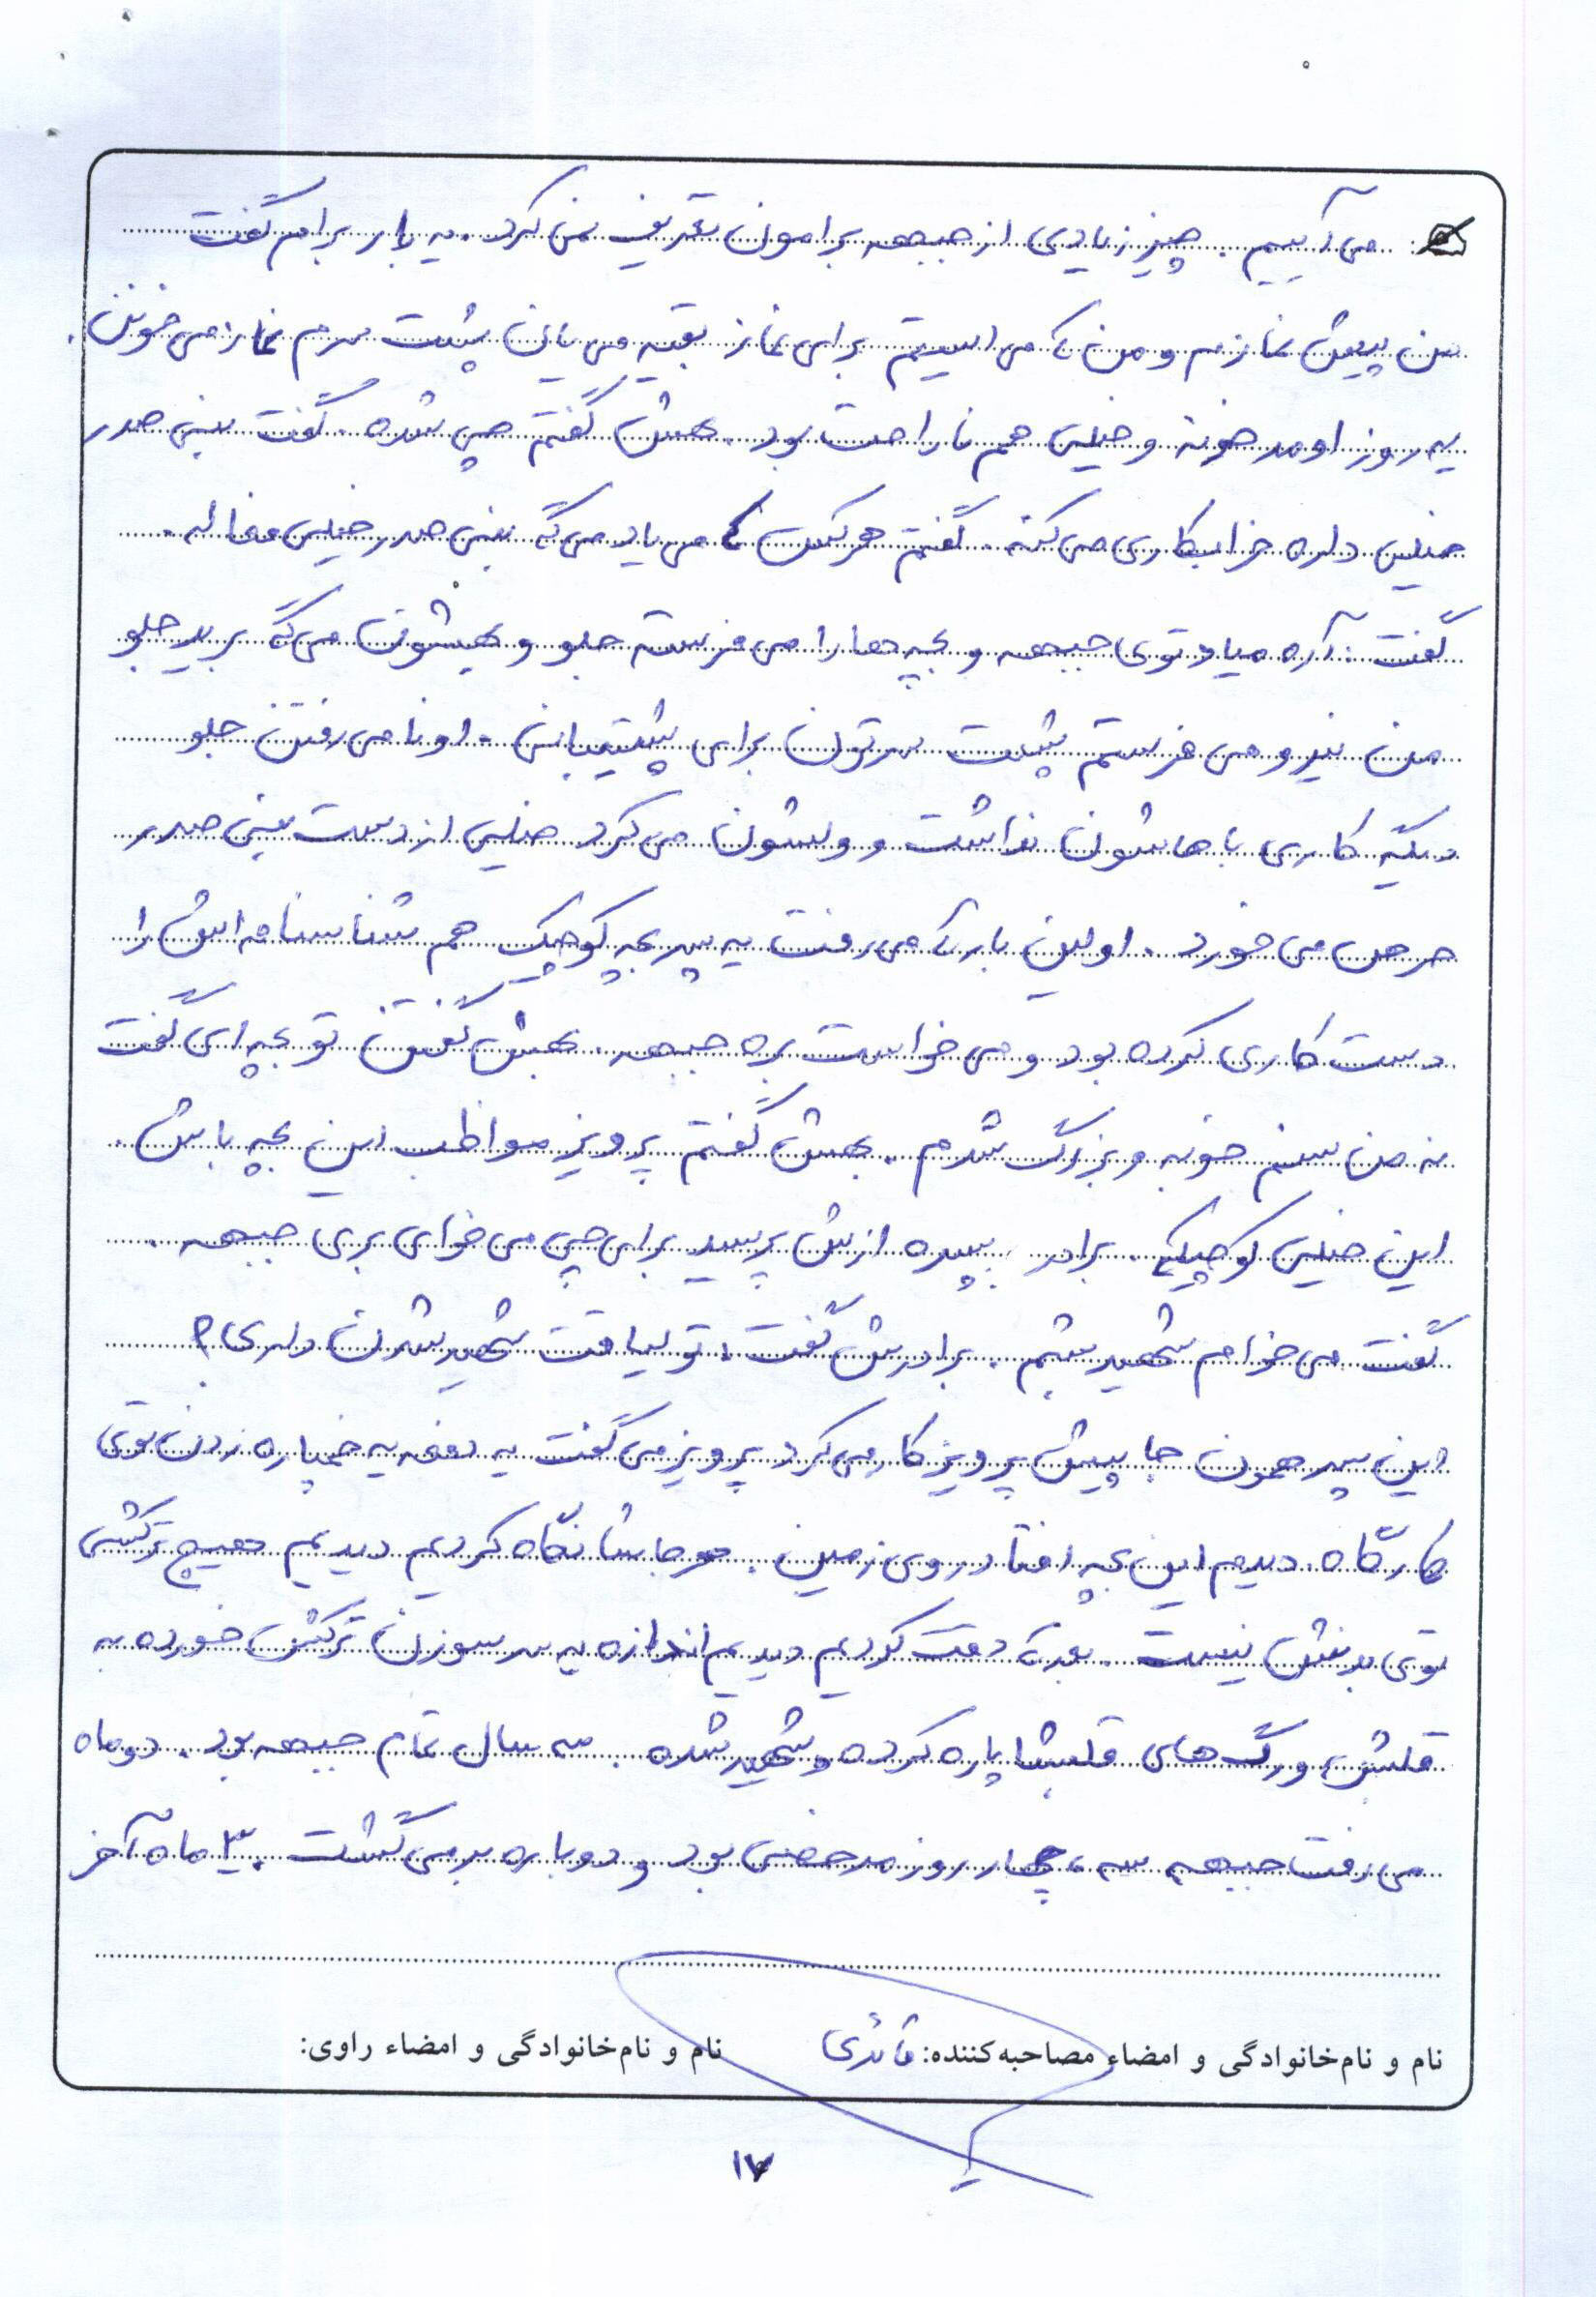 می‌آییم. چیز زیادی از جبهه برامون تعریف نمی‌کرد. یه بار برام گفت
من پیش نمازم و من که می ایستم برای نماز بقیه می‌یان پشت سرم نماز می‌خونن.
یه روز اومد خونه و خیلی هم ناراحت بود. بهش گفتم چی شده. گفت بنی صدر
خیلی داره خرابکاری می‌کنه. گفتم هر کس که می یاد می‌گه بنی صدر خیلی فعاله.
گفت: آره میاد توی جبهه و بچه‌ها را می فرسته جلو و بهشون می‌گه برید جلو
من نیرو می فرستم پشت سرتون برای پشتیبانی. اونا می رفتن جلو
دیگه کاری باهاشون نداشت و ولشون می‌کرد خیلی از دست بنی صدر
حرص می‌خورد. اولین بار که می‌رفت یه پسر بچه کوچیک هم شناسنامه‌اش را
دست کاری کرده بود و می خواست بره جبهه. بهش گفتن تو بچه‌ای گفت
نه من سنم خوبه و بزرگ شدم. بهش گفتم پرویز مواظب این بچه باش.
این خیلی کوچیکه. برادر پسره ازش پرسید برای چی می خوای بری جبهه.
گفت می خوام شهید بشم. برادرش گفت: تو لیاقت شهید شدن داری؟
این پسر همون جا پیش پرویز کار می‌کرد پرویز می‌گفت یه دفعه یه خمپاره زدن توی
کارگاه. دیدم این بچه افتاد روی زمین. هر جاشا نگاه کردیم دیدیم هیچ ترکشی
توی بدنش نیست. بعد که دقت کردیم دیدیم اندازه یه سر سوزن ترکش خورده به
قلبش و رگ‌های قلبشا پاره کرده و شهید شده. سه سال تمام جبهه بود. دو ماه
می‌رفت جبهه سه، چهار روز مرخصی بود و دوباره برمی‌گشت. ۳ ماه آخر
نام و نام‌خانوادگی و امضاء مصاحبه‌کننده: قائدی نام و نام‌خانوادگی و امضاء راوی:
۱۷